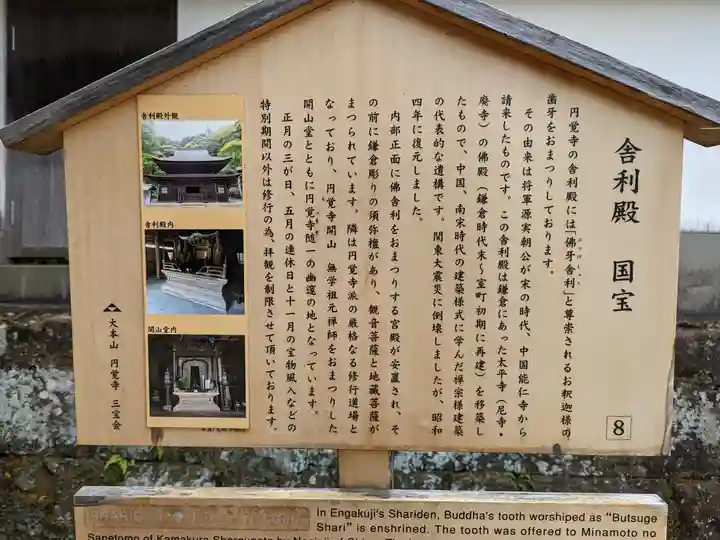 舎利殿 国宝
円覚寺の舎利殿には「佛牙舎利」と尊崇されるお釈迦様の
歯牙をおまつりしております。
その由来は将軍源実朝公が宋の時代、中国能仁寺から
請来したものです。この舎利殿は鎌倉にあった太平寺（尼寺・
廃寺）の佛殿（鎌倉時代末～室町初期に再建）を移築し
たもので、中国、南宋時代の建築様式に学んだ禅宗様建築
の代表的な遺構です。関東大震災に倒壊しましたが、昭和
四年に復元しました。
内部正面に佛舎利をおまつりする宮殿が安置され、そ
の前に鎌倉彫りの須弥壇があり、観音菩薩と地蔵菩薩が
まつられています。隣は円覚寺派の厳格なる修行道場と
なっており、円覚寺開山 無学祖元禅師をおまつりした
開山堂とともに円覚寺随一の幽邃の地となっています。
正月の三が日、五月の連休日と十一月の宝物風入などの
特別期間以外は修行の為、拝観を制限させて頂いております。
舎利殿外観
舎利殿内
開山堂内
大本山 円覚寺 三宝会
8
In Engakuji's Shariden, Buddha's tooth worshiped as "Butsuge
Shari" is enshrined. The tooth was offered to Minamoto no